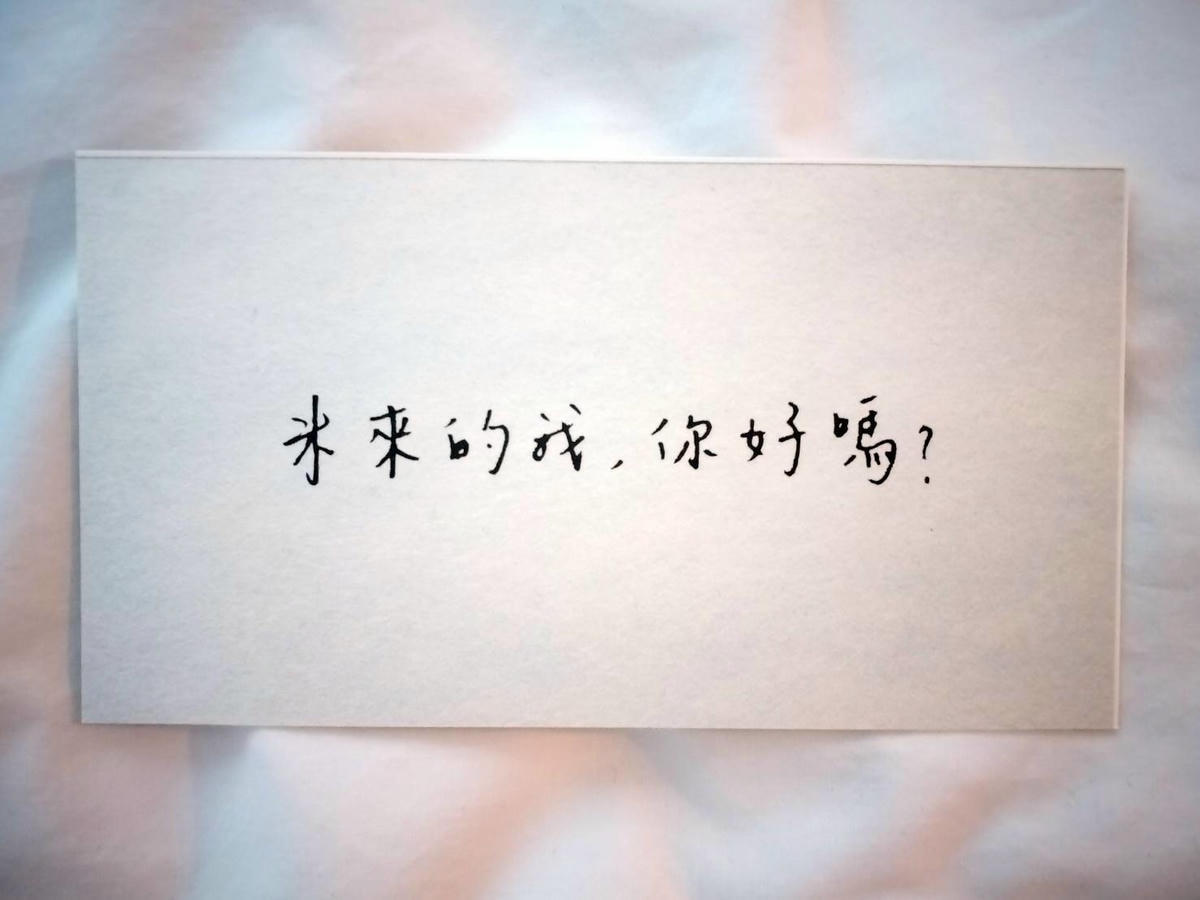 未來的我,你好嗎?